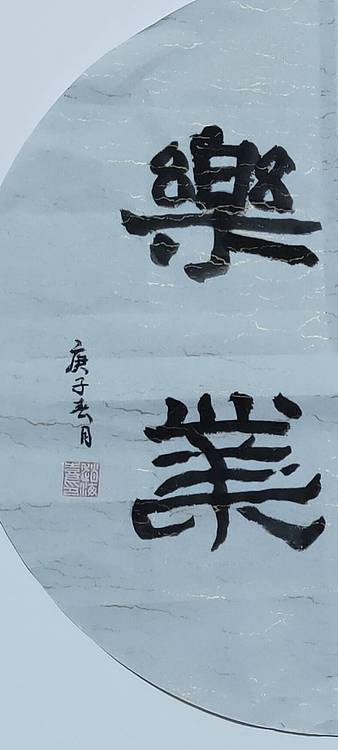 樂業
庚子春月